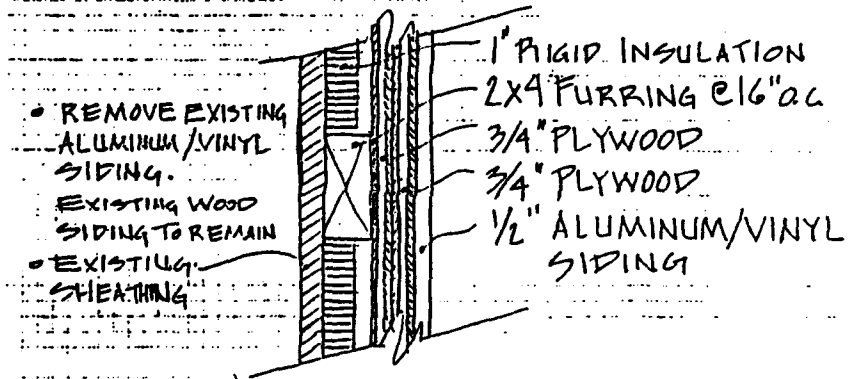 • REMOVE EXISTING
ALUMINUM/VINYL
SIDING.
EXISTING WOOD
SIDING TO REMAIN
• EXISTING
SHEATHING
1" RIGID INSULATION
2X4 FURRING @16" O.C.
3/4" PLYWOOD
3/4" PLYWOOD
1/2" ALUMINUM/VINYL
SIDING